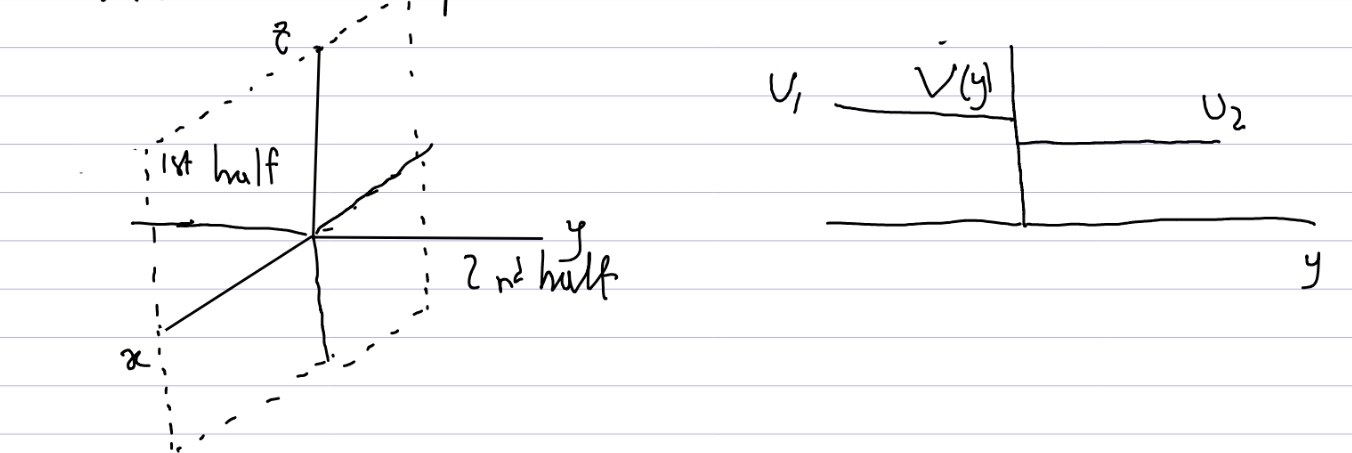 z
1st half
y
2nd half
x
U1
V(y)
U2
y